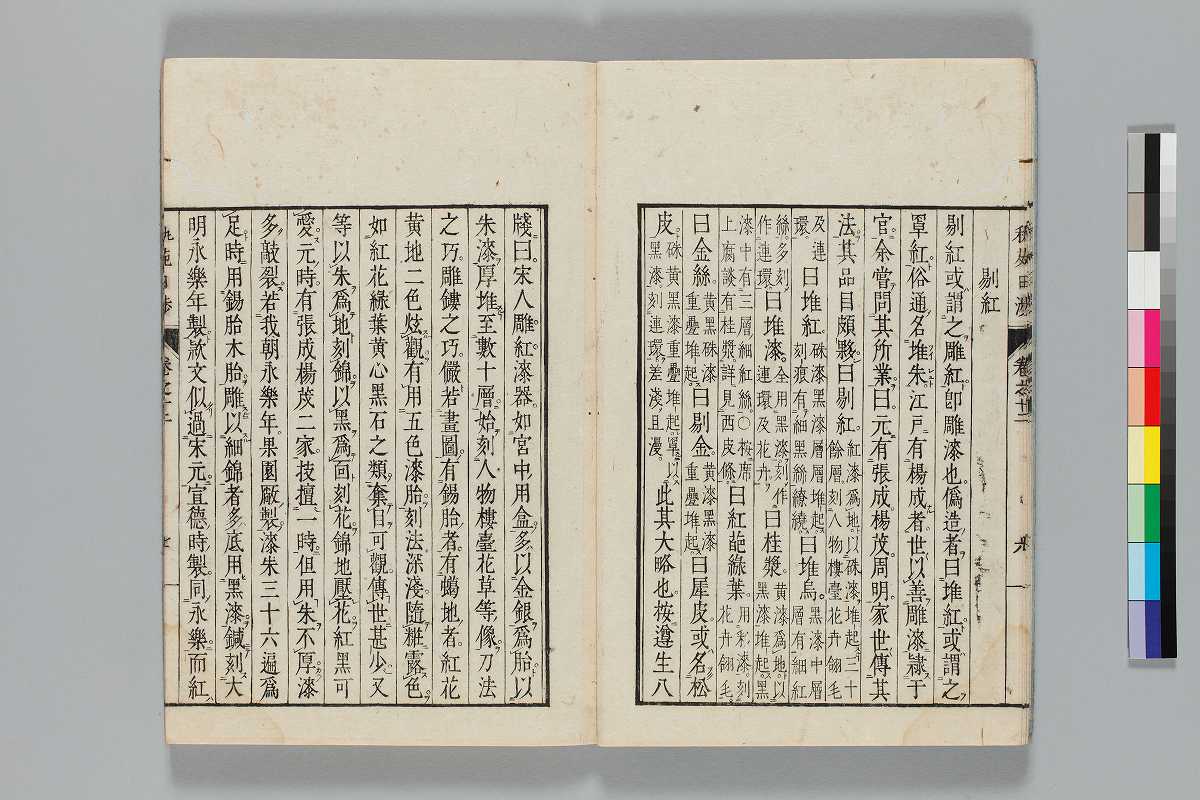 剔紅
剔紅或謂之雕紅卽雕漆也僞造者曰堆紅或謂之
罩紅俗通名堆朱江戸有楊成者世以善雕漆隷于
官余嘗問其所業曰元有張成楊茂周明家世傳其
法其品目頗夥曰剔紅紅漆爲地以硃漆堆起三十餘層刻人物樓臺花卉翎毛
及連環曰堆紅硃漆黑漆層層堆起刻痕有細黑絲繚繞曰堆烏黑漆中層層有細紅
絲多刻作連環曰堆漆全用黑漆刻作連環及花卉曰桂漿黃漆爲地以黑漆堆起黑
漆中有三層細紅絲○桉席上腐談有桂漿詳見西皮條曰紅葩綠葉用彩漆刻花卉翎毛
曰金絲黃黑硃漆重疊堆起曰剔金黃漆黑漆重疊堆起曰犀皮或名松
皮硃黃黑漆重疊堆起罩以黑漆刻連環差淺且漫此其大略也桉遵生八
牋曰宋人雕紅漆器如宮中用盒多以金銀爲胎以
朱漆厚堆至數十層始刻人物樓臺花草等像刀法
之巧雕鏤之巧儼若畫圖有錫胎者有蠟地者紅花
黃地二色炫觀有用五色漆胎刻法深淺隨粧露色
如紅花綠葉黃心黑石之類奪目可觀傳世甚少又
等以朱爲地刻錦以黑爲面刻花錦地壓花紅黑可
愛元時有張成楊茂二家技擅一時但用朱不厚漆
多敲裂若我朝永樂年果園厰製漆朱三十六遍爲
足時用錫胎木胎雕以細錦者多底用黑漆鍼刻大
明永樂年製欵文似過宋元宣德時製同永樂而紅